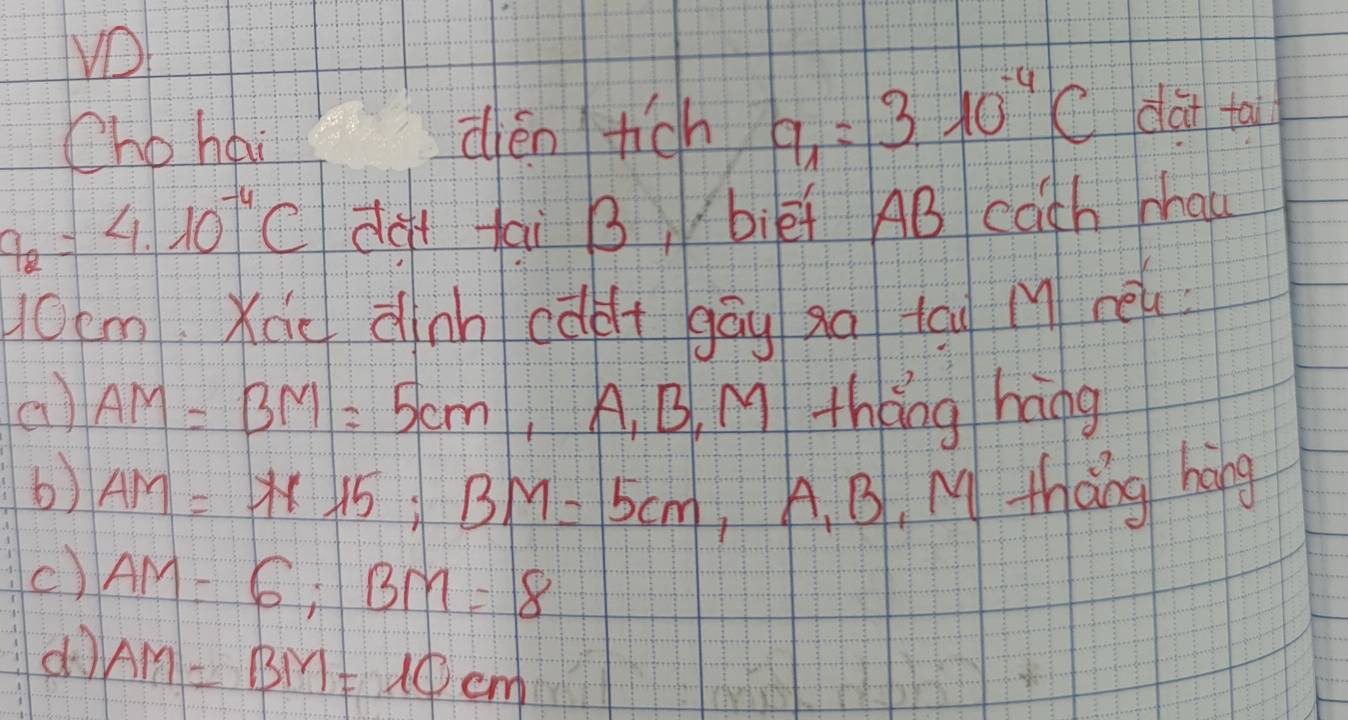 VD
Cho hai điện tích q₁ = 3.10⁻⁴ C đặt tại
q₂ = 4.10⁻⁴ C đặt tại B, biết AB cách nhau
10cm. Xác định cđđt gây ra tại M nếu:
a) AM = BM = 5cm, A, B, M thẳng hàng
b) AM = 15; BM = 5cm, A, B, M thẳng hàng
c) AM = 6; BM = 8
d) AM = BM = 10 cm